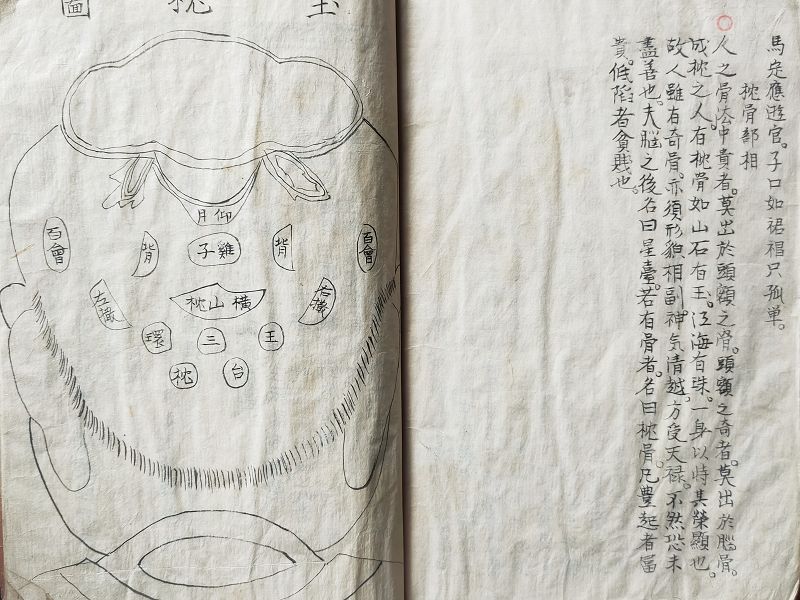 馬定應遊官。子口如裙褶只孤単。
枕骨部相
人之骨法中貴者。莫出於頭額之骨。頭額之奇者。莫出於腦骨。
成枕之人有枕骨如山石有玉。江海有珠。一身以恃其榮顯也。
故人雖有奇骨。亦須形貌相副。神気清越。方受天禄。不然恐未
盡善也。夫脳之後名曰星臺。若有骨者。名曰枕骨。凡豊起者富
貴。低陷者貧賎也。
玉枕圖
仰月
百會
背
雞子
背
百會
橫山枕
王
三
環
台
枕